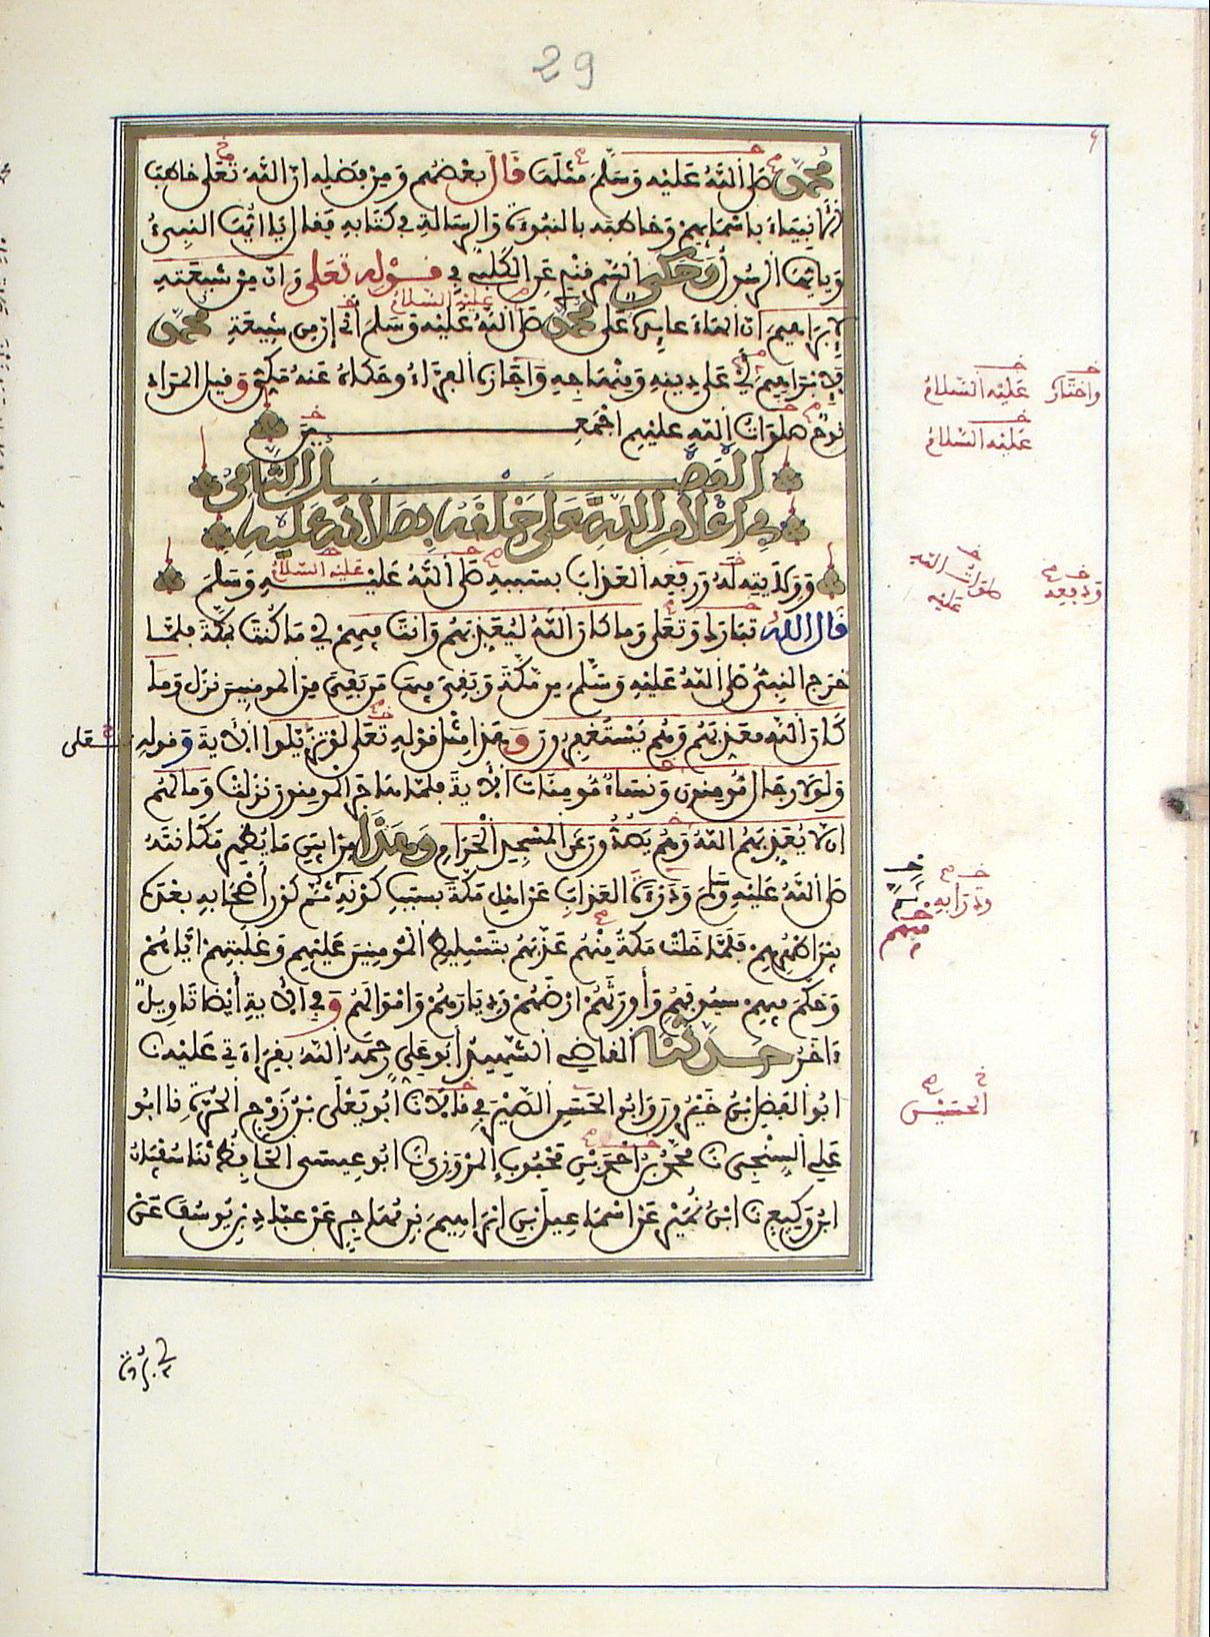 29
محمد صلى الله عليه وسلم مثلها قال بعضهم ومن فضله ان الله تعلى خاطب
الانبياء باسمائهم وخاطبه بالنبوة والرسالة في كتابه فقال يا ايها النبيء
ويايها الرسول وحكى السمرقندي عن الكلبي في قوله تعلى وان من شيعته
لابراهيم ان الهاء عايدة على محمد صلى الله عليه وسلم اي ان من شيعة محمد
عليه السلام
لابراهيم اي على دينه ومنهاجه واجازه الفراء وحكاه عنه مكي وقيل المراد
نوح صلوات الله عليهم اجمعين
الفصل الثامن
في اعلام الله تعلى خلقه بصلاته عليه
وولايته له ورفعه العذاب بسببه صلى الله عليه وسلم
عليه السلام
قال الله تبارك وتعلى وما كان الله ليعذبهم وانت فيهم اي ما كنت بمكة فلما
خرج النبيء صلى الله عليه وسلم من مكة وبقي فيها من بقي من المومنين نزل وما
كان الله معذبهم وهم يستغفرون وهذا مثل قوله تعلى لو تزيلوا الاية وقوله
تعلى
ولولا رجال مومنون ونساء مومنات الاية فلما هاجر المومنون نزلت وما لهم
ان لا يعذبهم الله وهم يصدون عن المسجد الحرام وهذا من ابين ما يظهر مكانته
صلى الله عليه وسلم ودرءه العذاب عن اهل مكة بسبب كونه ثم كون اصحابه بعده
بين اظهرهم فلما خلت مكة منهم عذبهم بتسليط المومنين عليهم وغلبتهم اياهم
وحكم فيهم سيوفهم واورثهم ارضهم وديارهم واموالهم وفي الاية ايضا تاويل
ءاخر حدثنا القاضي الشهيد ابو علي رحمه الله بقراءتي عليه نا
ابو الفضل بن خيرون وابو الحسن الصيرفي قالا نا ابو يعلى بن زوج الحرة نا ابو
علي السنجي نا محمد بن احمد بن محبوب المروزي نا ابو عيسى الحافظ ثنا سفيان
ابن وكيع نا ابن نمير عن اسماعيل بن ابراهيم بن مهاجر عن عباد بن يوسف عن
واختار
عليه السلام
عليه السلام
ودفعه
صلوات الله
عليه
ودرابه
فيهم
الحسين